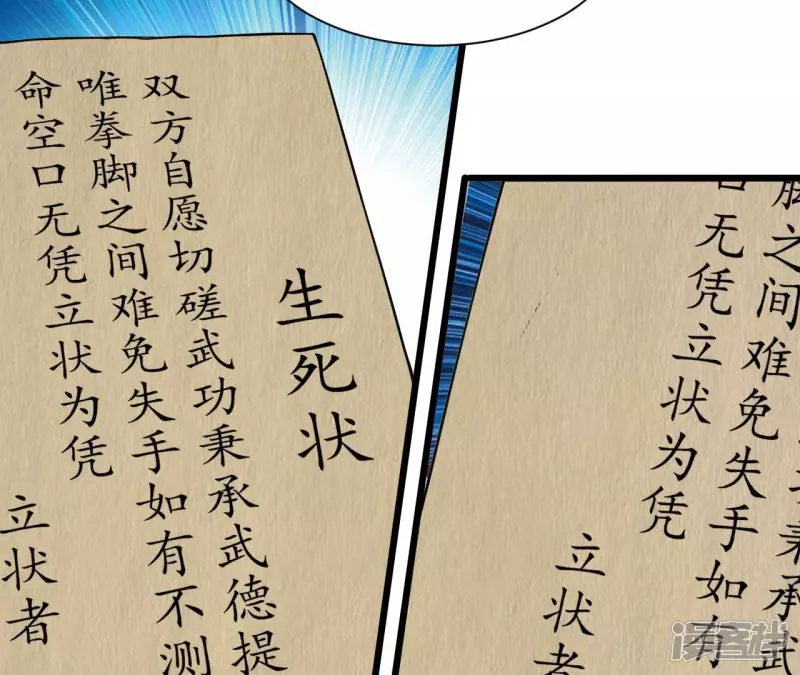 生死状
双方自愿切磋武功秉承武德提
唯拳脚之间难免失手如有不测
命空口无凭立状为凭
立状者
秉承武
脚之间难免失手如有
口无凭立状为凭
立状者
漫客栈